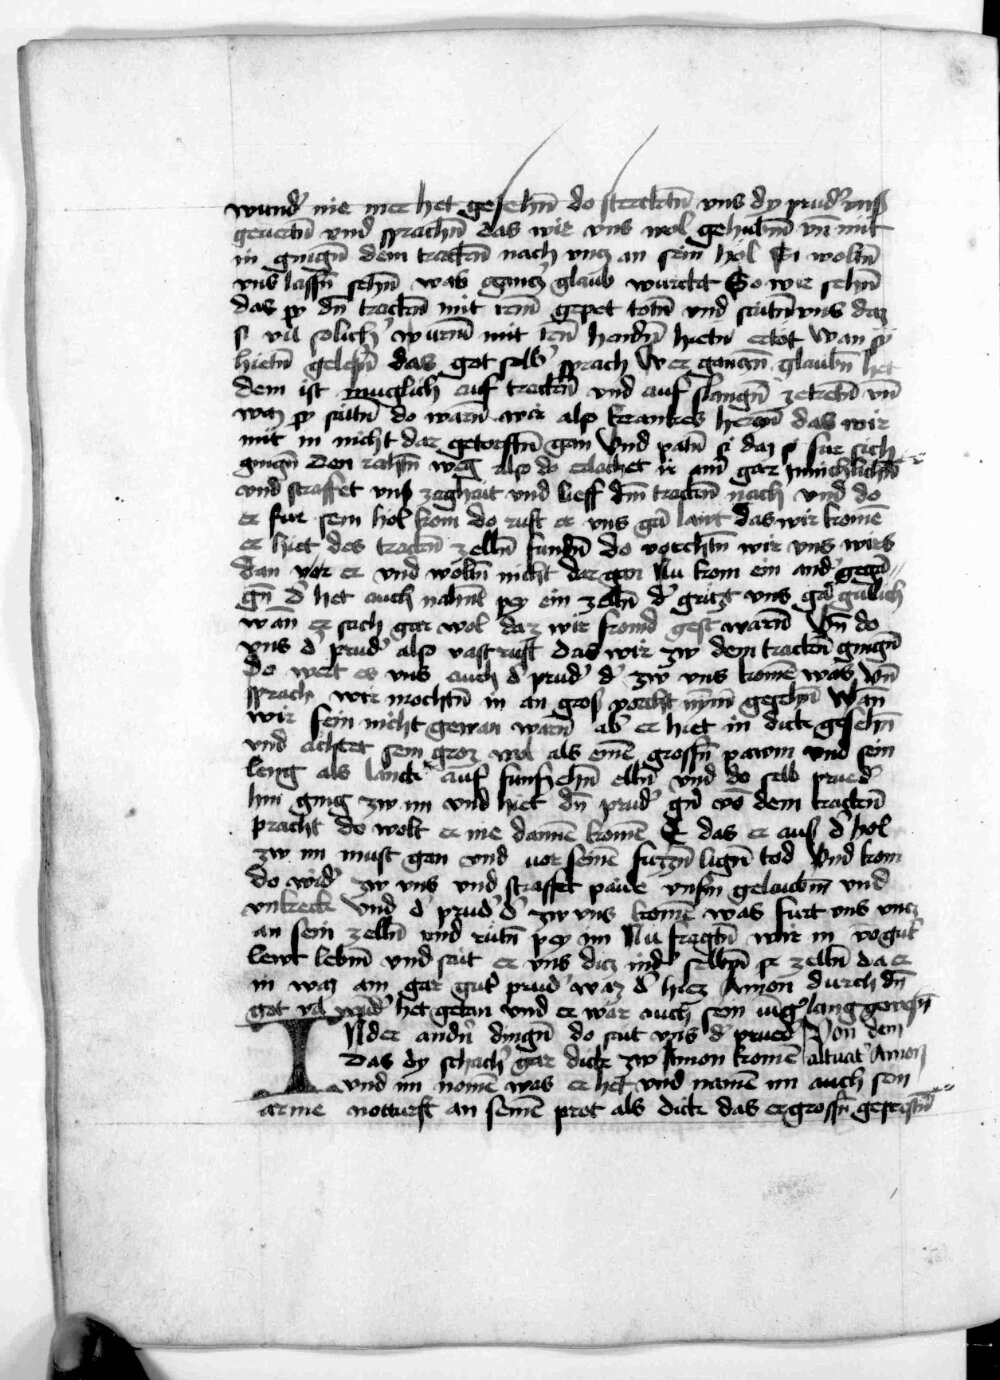 wund' nie mer het gesehn̄ do stercktn̄ vns dy prud' vnß
geuertn̄ vnd sprachn̄ das wir vns wol gehubn̄ vn̄ mit
in gingn̄ dem tracken̄ nach vncz an sein hol Si woltn̄
vns lassn̄ sehn̄ was gancz' glaub wurckt So wir sehn̄
das sy dn̄ tracken̄ mit irem̄ gepet totn̄ vnd saitn̄ vns daz
si vil solich' wurm̄ mit irn̄ hendn̄ hietn̄ ertot Wan sy
hietn̄ gelesn̄ das got selb' sprach Wer ganczn̄ glaubn̄ het
dem ist muglich auf trackn̄ vnd auf slangn̄ zetretn̄ vn̄
waz sy saitn̄ do warn̄ wir also krankes herczn̄ das wir
mit in nicht dar getorstn̄ gan Vnd patn̄ si daz si fur sich
gingn̄ den rechtn̄ weg also do erlachet ir ain' gar innichlichn̄
vnd straffet vnß zaghait vnd lieff dm̄ tracken̄ nach vnd do
er fur sein hol kom do ruft er vns gar laut das wir komē
er hiet des trackn̄ zelln̄ fundn̄ do vorchtn̄ wir vns wirs
dan vor er vnd woltn̄ nicht dar gan Nu kom ein and' gega
gn̄ d' het auch nahnt pey ein zelln̄ d' gruzt vns gar gutlich
wān er sach gar wol daz wir fromd gest warn̄ Vn̄ do
vns d' prud' also vast ruft das wir zw dem trackn̄ gingn̄
Do wert es vns auch d' prud' d' zw vns komē was vn̄
sprach wir mochtn̄ in an gros vorcht nym̄ gesehn̄ Wān
wir sein nicht gewan warn̄ ab' er hiet in dick gesehn̄
vnd achtet sein groz wol als einē grossn̄ pawm vnd sein
leng als lanck auf funfzehn̄ elln̄ vnd do selb prued'
hin ging zw im vnd hiet dn̄ prud' gn̄ vō dem trackn̄
pracht do wolt er nie dannē komē E das er auß d' hol
zw im must gan vnd vor seinē fuzzn̄ lign̄ tod Vnd kom
do wid' zw vns vnd straffet paide vnsn̄ gelaubm̄ vnd
vnd d' prud' d' zw vns komē was furt vns vncz
an sein zelln̄ vnd rutn̄ pey im Nu fragtn̄ wir in vō gut'
lewt lebm̄ vnd sait er vns daz in d' selbm̄ zelln̄ da er
in waz ain gar gut' prud' waz d' hiez Amon durch dn̄
got vil wund' het getan vnd er war auch sein iūg' lang gewesn̄
INder andn̄ dingn̄ do sait vns d' prued' Von dem
Das dy schach' gar dick zw Amon komē altuat' Amon
vnd im nomē was er het vnd namē im auch sein
arme notturft an seinē prot als dick das er grossn̄ geprestn̄